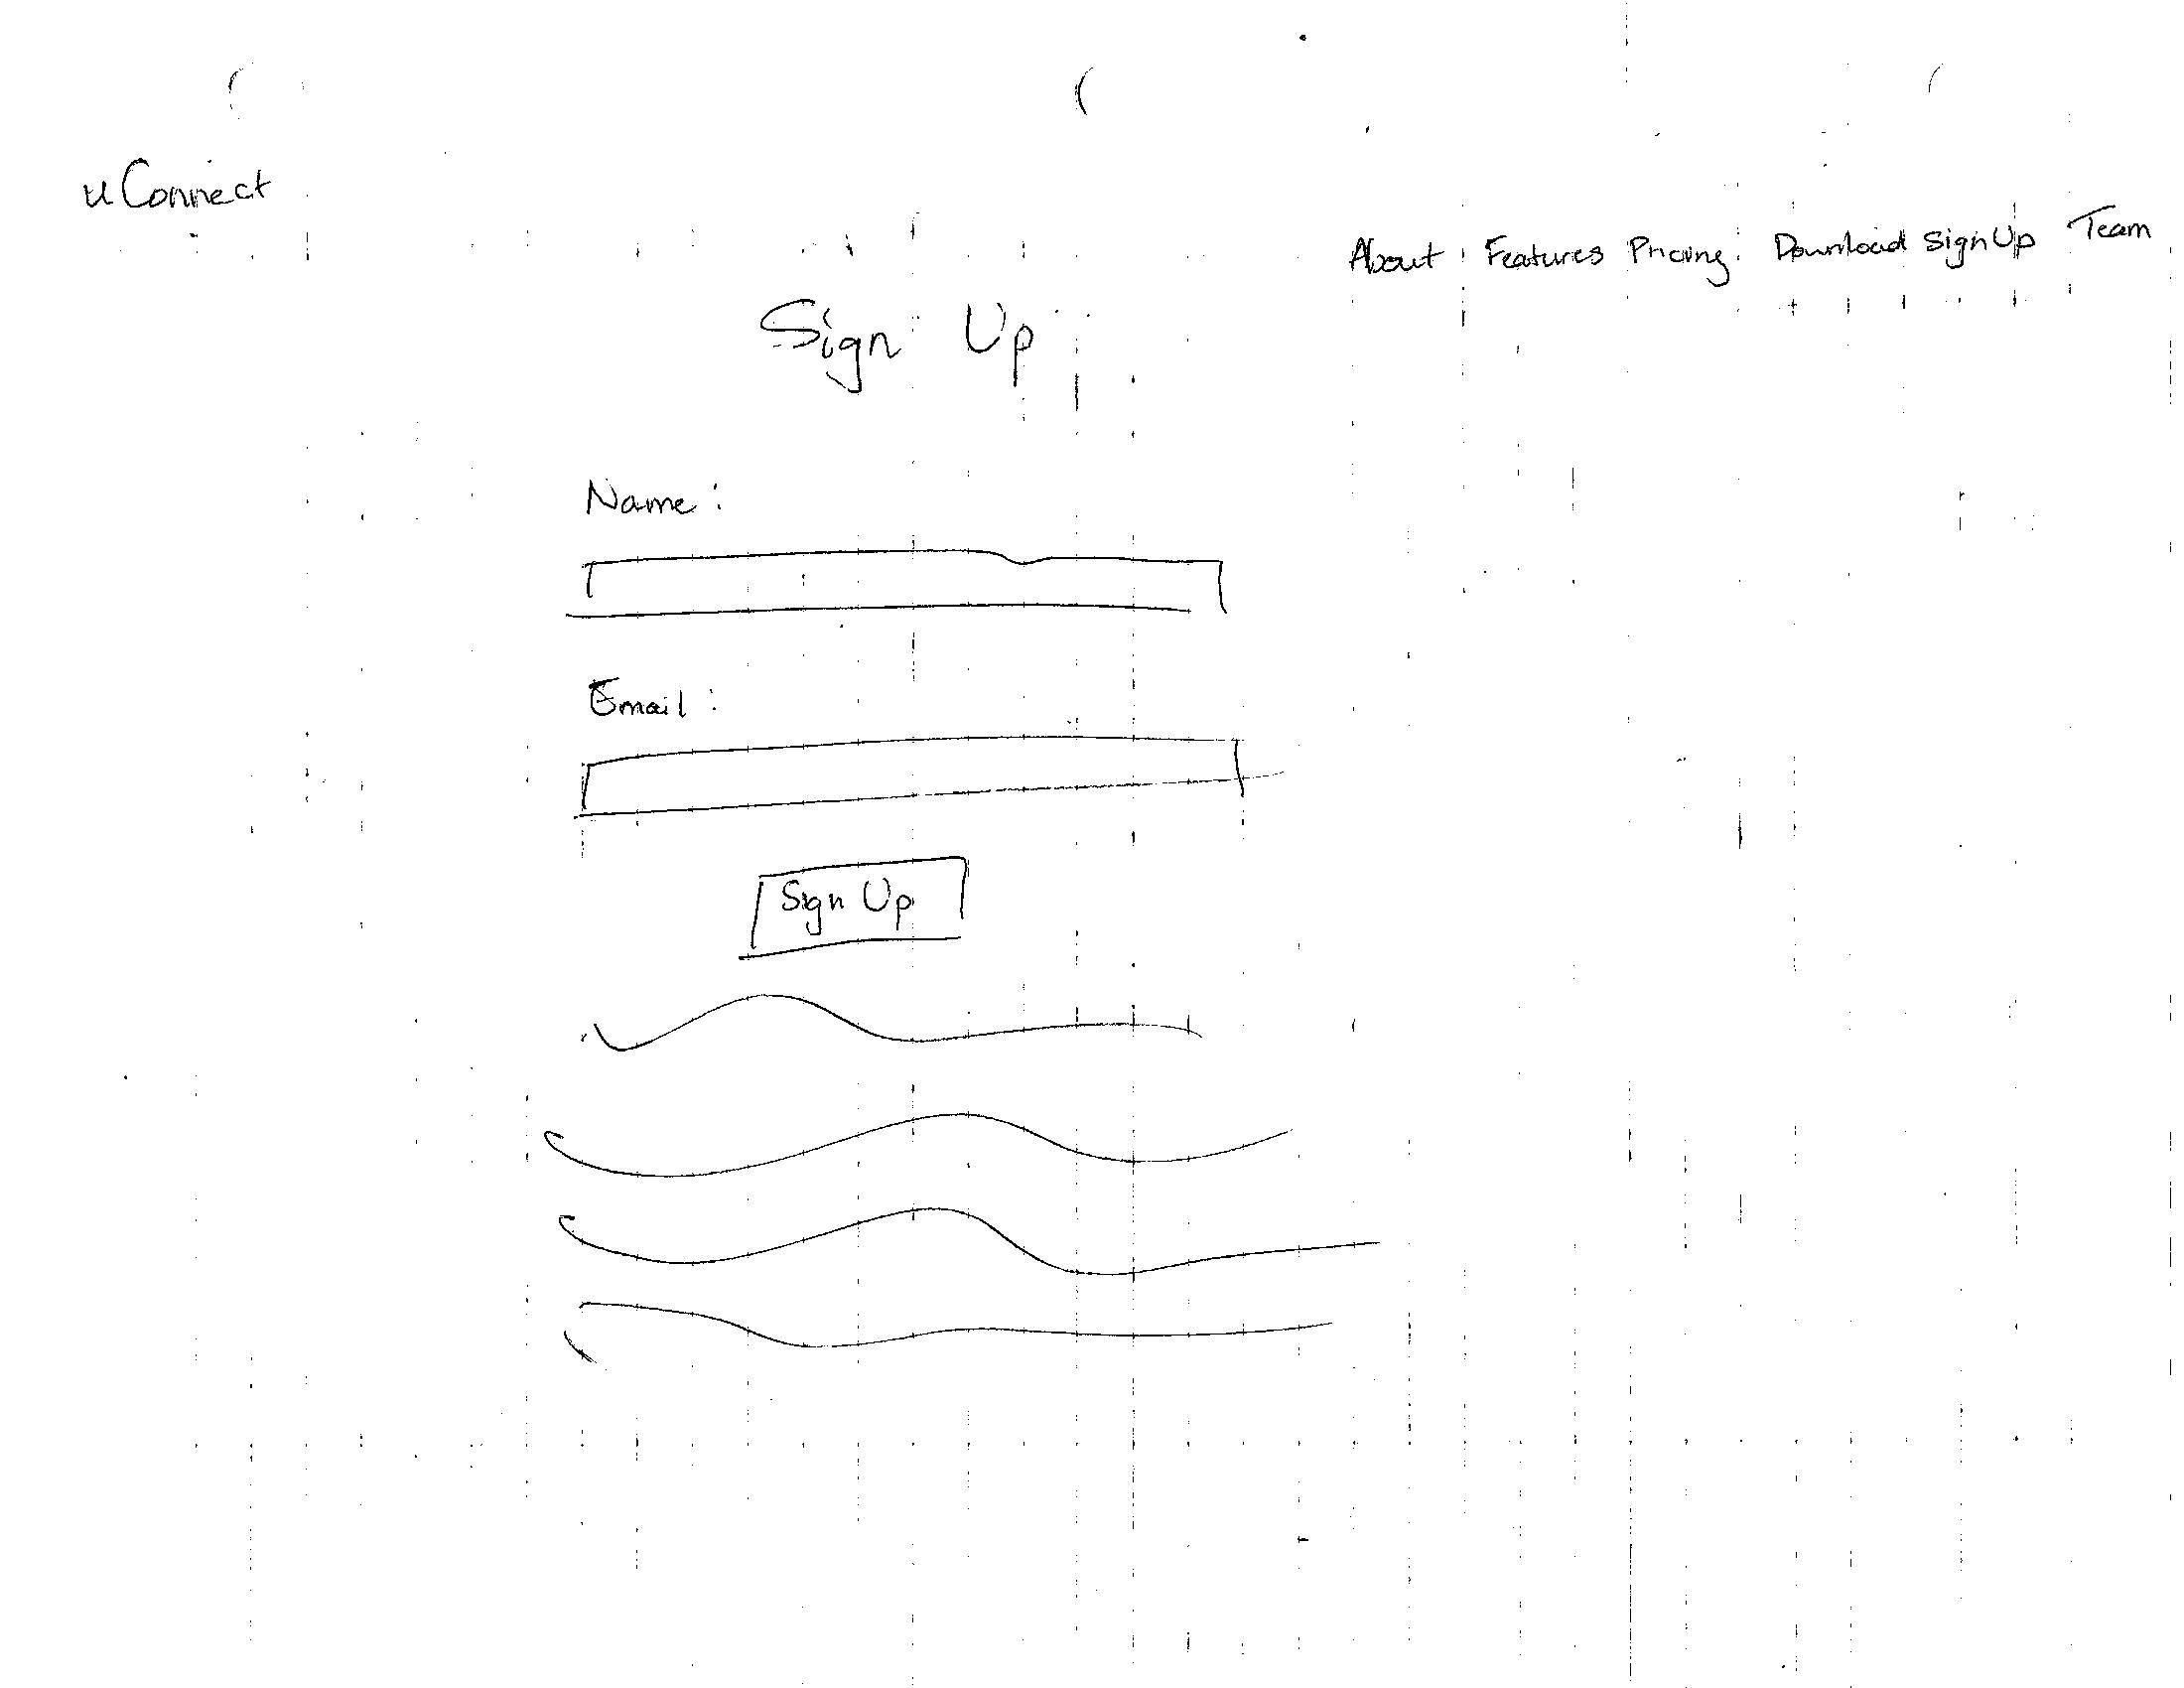 uConnect
About Features Pricing Download Sign Up Team
Sign Up
Name :
Email :
Sign Up